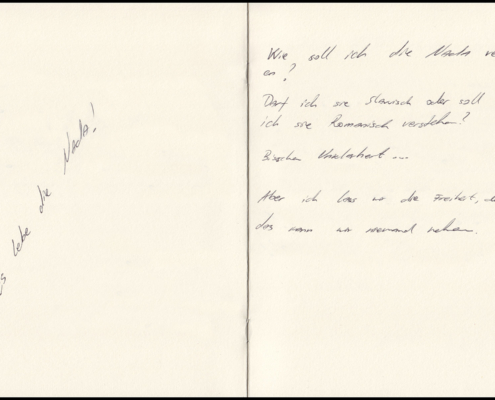 es lebe die Nada!
Wie soll ich die Nada ve
en?
Darf ich sie Slawisch oder soll
ich sie Romanisch verstehen?
Bisschen
Aber ich lass mir die Freiheit,
das kann mir niemand nehmen.